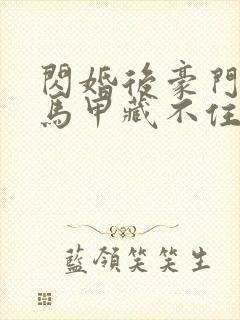 閃婚後豪門
馬甲藏不住
藍領笑笑生